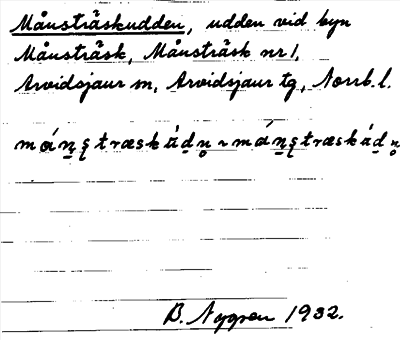 Månsträskudden, udden vid byn
Månsträsk, Månsträsk nr 1,
Arvidsjaur sn, Arvidsjaur tg, Norrb. l.
mǻn̠s̨træskàd̠n̥ ~ má́n̠s̨træskád̠n̥
B. Nygren 1932.